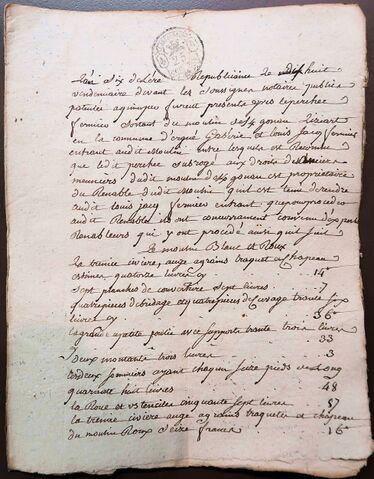 L'an six de l'ère Republicaine le dixhuit
vendemiaire devant les soussignés notaire publics
patentés a quimper furent presents
fermier sortant du moulin de gonan Lizart
en la commune d'ergué Gaberic et louis jacq fermier
entrant audit Moulin entre lesquels est Reconnu
que ledit perchec subrogé aux droits des
meuniers dudit moulin gonan est proprietaire
du Renable dudit Moulin qui est tenu de rendre
audit louis jacq fermier entrant que pour proceder
audit Renable ils ont concurrament convenu d'experts
Renableurs qui y ont procedé ainsi quil suit
Le moulin Blanc et Roux
La tremie civiere, auge a grains traquet et chapeau
estimés quatorze livres cy 14
Sept planches de couverture sept livres 7
quatre pieces de bridage et quatre pieces de trante six
livres cy 36
La grande et petite poulie avec supports trante trois livres
33
Deux montants trois livres 3
Les deux sommiers ayant chaque seize pieds de Long
quarante huit livres 48
La Roue et ustenciles cinquante sept livres 57
La tremie civiere auge a grains traquet et chapeau
du moulin Roux seize francs 16